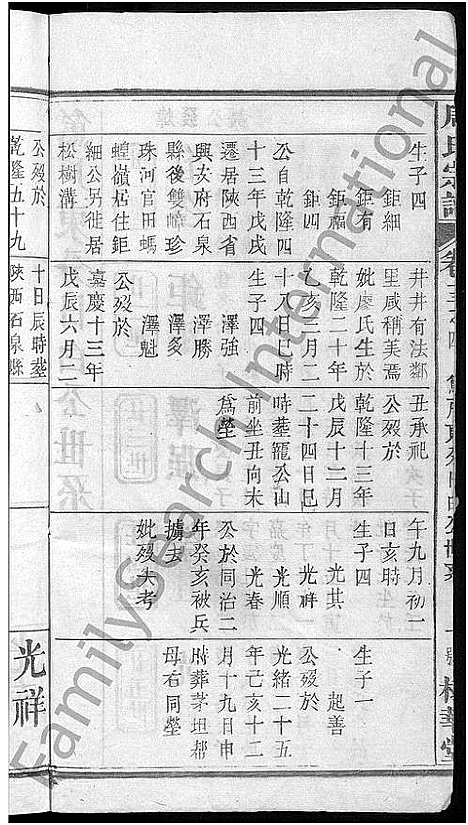 周氏宗譜
卷三之四
生子四
鉅細
鉅有
鉅福
鉅四
公自乾隆四
十三年戊戌
遷居陝西省
興安府石泉
縣後雙嶂珍
珠河官田螞
蝗嶺居住鉅
細公另徙居
松樹溝
公歿於
乾隆五十九
井井有法鄰
里咸稱美焉
妣廖氏生於
乾隆二十年
乙亥三月二
十八日巳時
生子四
澤強
澤勝
澤多
澤魁
公歿於
嘉慶十三年
戊辰六月二
十日辰時塟
陝西石泉縣
丑承祀
公歿於
乾隆十三年
戊辰十二月
二十四日巳
時塟龍公山
前坐丑向未
為塋
午九月初一
日亥時
生子四
光其
光祥
光順
光春
公於同治二
年癸亥被兵
擄去
妣歿失考
生子一
起善
公歿於
光緒二十五
年己亥十二
月十九日申
時葬茅坦郁
母右同塋
光祥
FamilySearch International